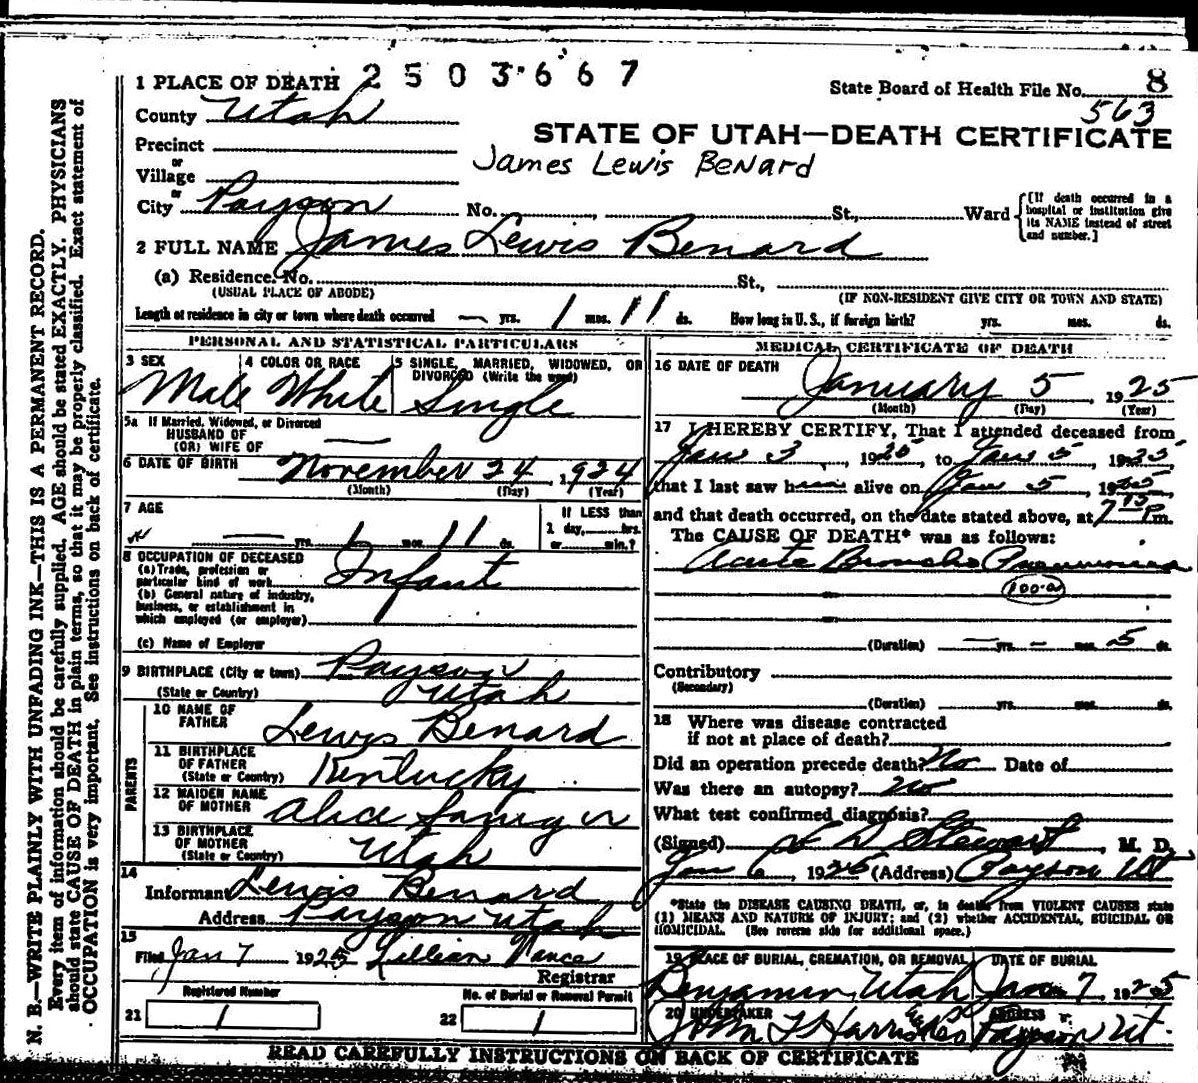 1 PLACE OF DEATH 2503667
State Board of Health File No. 8
County Utah
563
STATE OF UTAH—DEATH CERTIFICATE
Precinct
James Lewis Benard
or
Village
or
City Payson No. , St., Ward {[If death occurred in a hospital or institution give its NAME instead of street and number.]
2 FULL NAME James Lewis Benard
(a) Residence. No. St.,
(USUAL PLACE OF ABODE) (IF NON-RESIDENT GIVE CITY OR TOWN AND STATE)
Length of residence in city or town where death occurred — yrs. 1 mos. 11 ds. How long in U. S., if foreign birth? yrs. mos. ds.
PERSONAL AND STATISTICAL PARTICULARS
3 SEX
Male
4 COLOR OR RACE
White
5 SINGLE, MARRIED, WIDOWED, OR
DIVORCED (Write the word)
Single
5a If Married, Widowed, or Divorced
HUSBAND OF
(OR) WIFE OF —
6 DATE OF BIRTH November 24, 1924
(Month) (Day) (Year)
7 AGE
— yrs. 1 mos. 11 ds.
If LESS than
1 day, hrs.
or min.?
8 OCCUPATION OF DECEASED
(a) Trade, profession or
particular kind of work Infant
(b) General nature of industry,
business, or establishment in
which employed (or employer)
(c) Name of Employer
9 BIRTHPLACE (City or town) Payson
(State or Country) Utah
PARENTS
10 NAME OF
FATHER Lewis Benard
11 BIRTHPLACE
OF FATHER
(State or Country) Kentucky
12 MAIDEN NAME
OF MOTHER Alice
13 BIRTHPLACE
OF MOTHER
(State or Country) Utah
14
Informant Lewis Benard
Address Payson Utah
15
Filed Jan 7 1925 Lillian Vance
Registrar
Registered Number
21 1
No. of Burial or Removal Permit
22 1
MEDICAL CERTIFICATE OF DEATH
16 DATE OF DEATH
January 5, 1925
(Month) (Day) (Year)
17 I HEREBY CERTIFY, That I attended deceased from
Jan 3, 1925, to Jan 5, 1925
that I last saw him alive on Jan 5, 1925,
and that death occurred, on the date stated above, at 7 15 P m.
The CAUSE OF DEATH* was as follows:
Acute Broncho Pneumonia
100-a
(Duration) — yrs. — mos. 5 ds.
Contributory
(Secondary)
(Duration) yrs. mos. ds.
18 Where was disease contracted
if not at place of death?
Did an operation precede death? No Date of
Was there an autopsy? No
What test confirmed diagnosis?
(Signed) L D Stewart, M. D.
Jan 6, 1925 (Address) Payson Ut
*State the DISEASE CAUSING DEATH, or, in deaths from VIOLENT CAUSES state
(1) MEANS AND NATURE OF INJURY; and (2) whether ACCIDENTAL, SUICIDAL OR
HOMICIDAL. (See reverse side for additional space.)
19 PLACE OF BURIAL, CREMATION, OR REMOVAL
Benjamin, Utah
DATE OF BURIAL
Jan 7 1925
20 UNDERTAKER
John T Harris
ADDRESS
Payson Ut.
READ CAREFULLY INSTRUCTIONS ON BACK OF CERTIFICATE
N. B.—WRITE PLAINLY WITH UNFADING INK—THIS IS A PERMANENT RECORD.
Every item of information should be carefully supplied. AGE should be stated EXACTLY. PHYSICIANS
should state CAUSE OF DEATH in plain terms, so that it may be properly classified. Exact statement of
OCCUPATION is very important. See instructions on back of certificate.